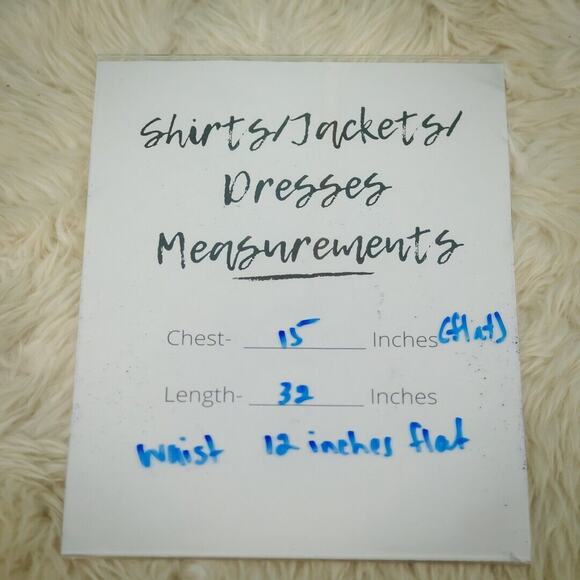 Shirts/Jackets/
Dresses
Measurements
Chest- 15 Inches (flat)
Length- 32 Inches
waist 12 inches flat